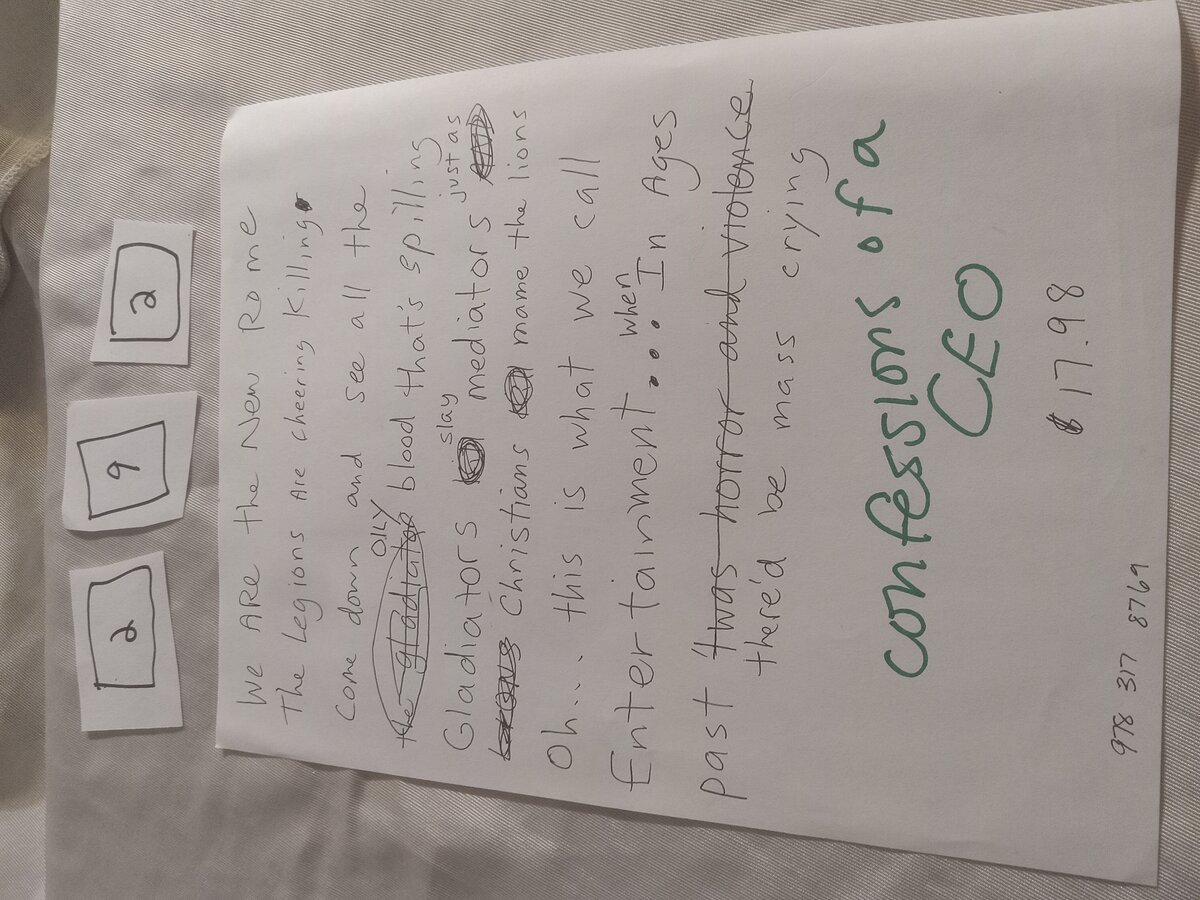 2
9
2
We ARe the New Rome
The Legions Are cheering Killing
Come down and see all the
oily
the gladiator blood that's spilling
slay just as
Gladiators mediators
Christians mame the lions
Oh... this is what we call
when
Entertainment... In Ages
past 'twas horror and violence
there'd be mass crying
confessions of a
CEO
$17.98
978 317 8769